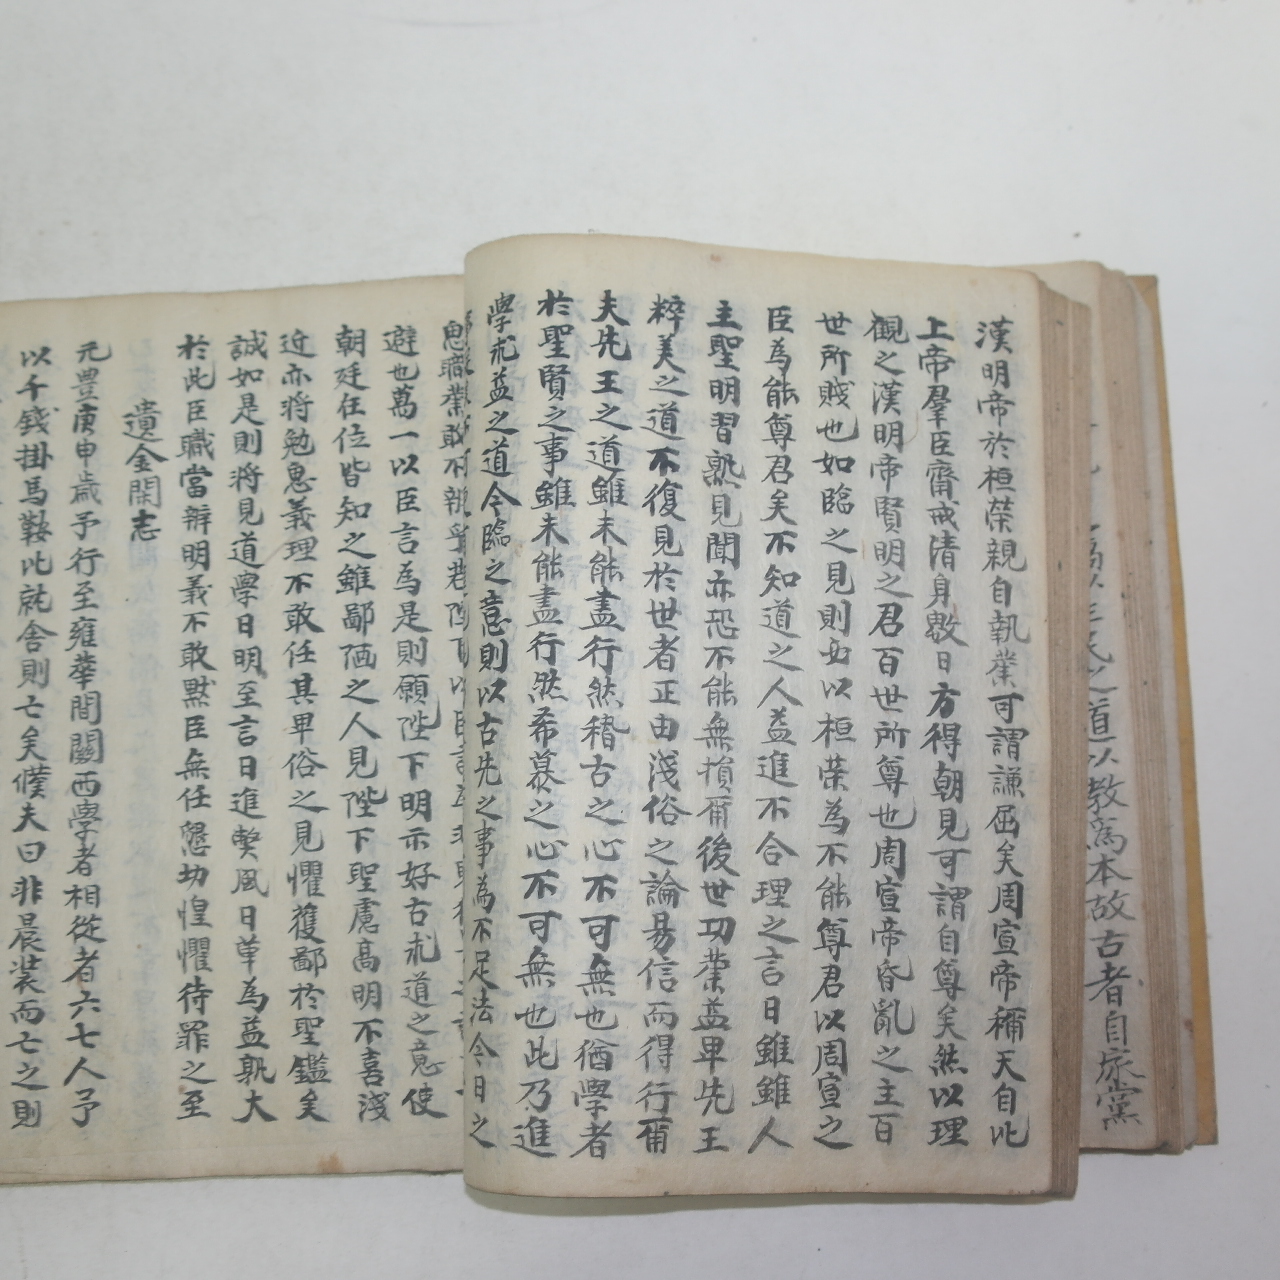 道以教爲本故古者自家黨
漢明帝於桓榮親自執業可謂謙屈矣周宣帝稱天自比
上帝羣臣齋戒清身數日方得朝見可謂自尊矣然以理
觀之漢明帝賢明之君百世所尊也周宣帝昏亂之主百
世所賤也如臨之見則必以桓榮為不能尊君以周宣之
臣為能尊君矣不知道之人益進不合理之言日雖雖人
主聖明習熟見聞亦恐不能無損爾後世功業益卑先王
粹美之道不復見於世者正由淺俗之論易信而得行爾
夫先王之道雖未能盡行然稽古之心不可無也猶學者
於聖賢之事雖未能盡行然希慕之心不可無也此乃進
學求益之道今臨之意則以古先之事為不足法今日之
思職業敢不
避也萬一以臣言為是則願陛下明示好古求道之意使
朝廷在位皆知之雖鄙陋之人見陛下聖慮高明不喜淺
近亦將勉思義理不敢任其卑俗之見懼獲鄙於聖鑑矣
誠如是則將見道學日明至言日進獘風日革為益孰大
於此臣職當辨明義不敢默臣無任懇切惶懼待罪之至
遺金閑志
元豊庚申歲予行至雍華間關西學者相從者六七人予
以千錢掛馬鞍比就舍則亡矣僕夫曰非晨裝而亡之則